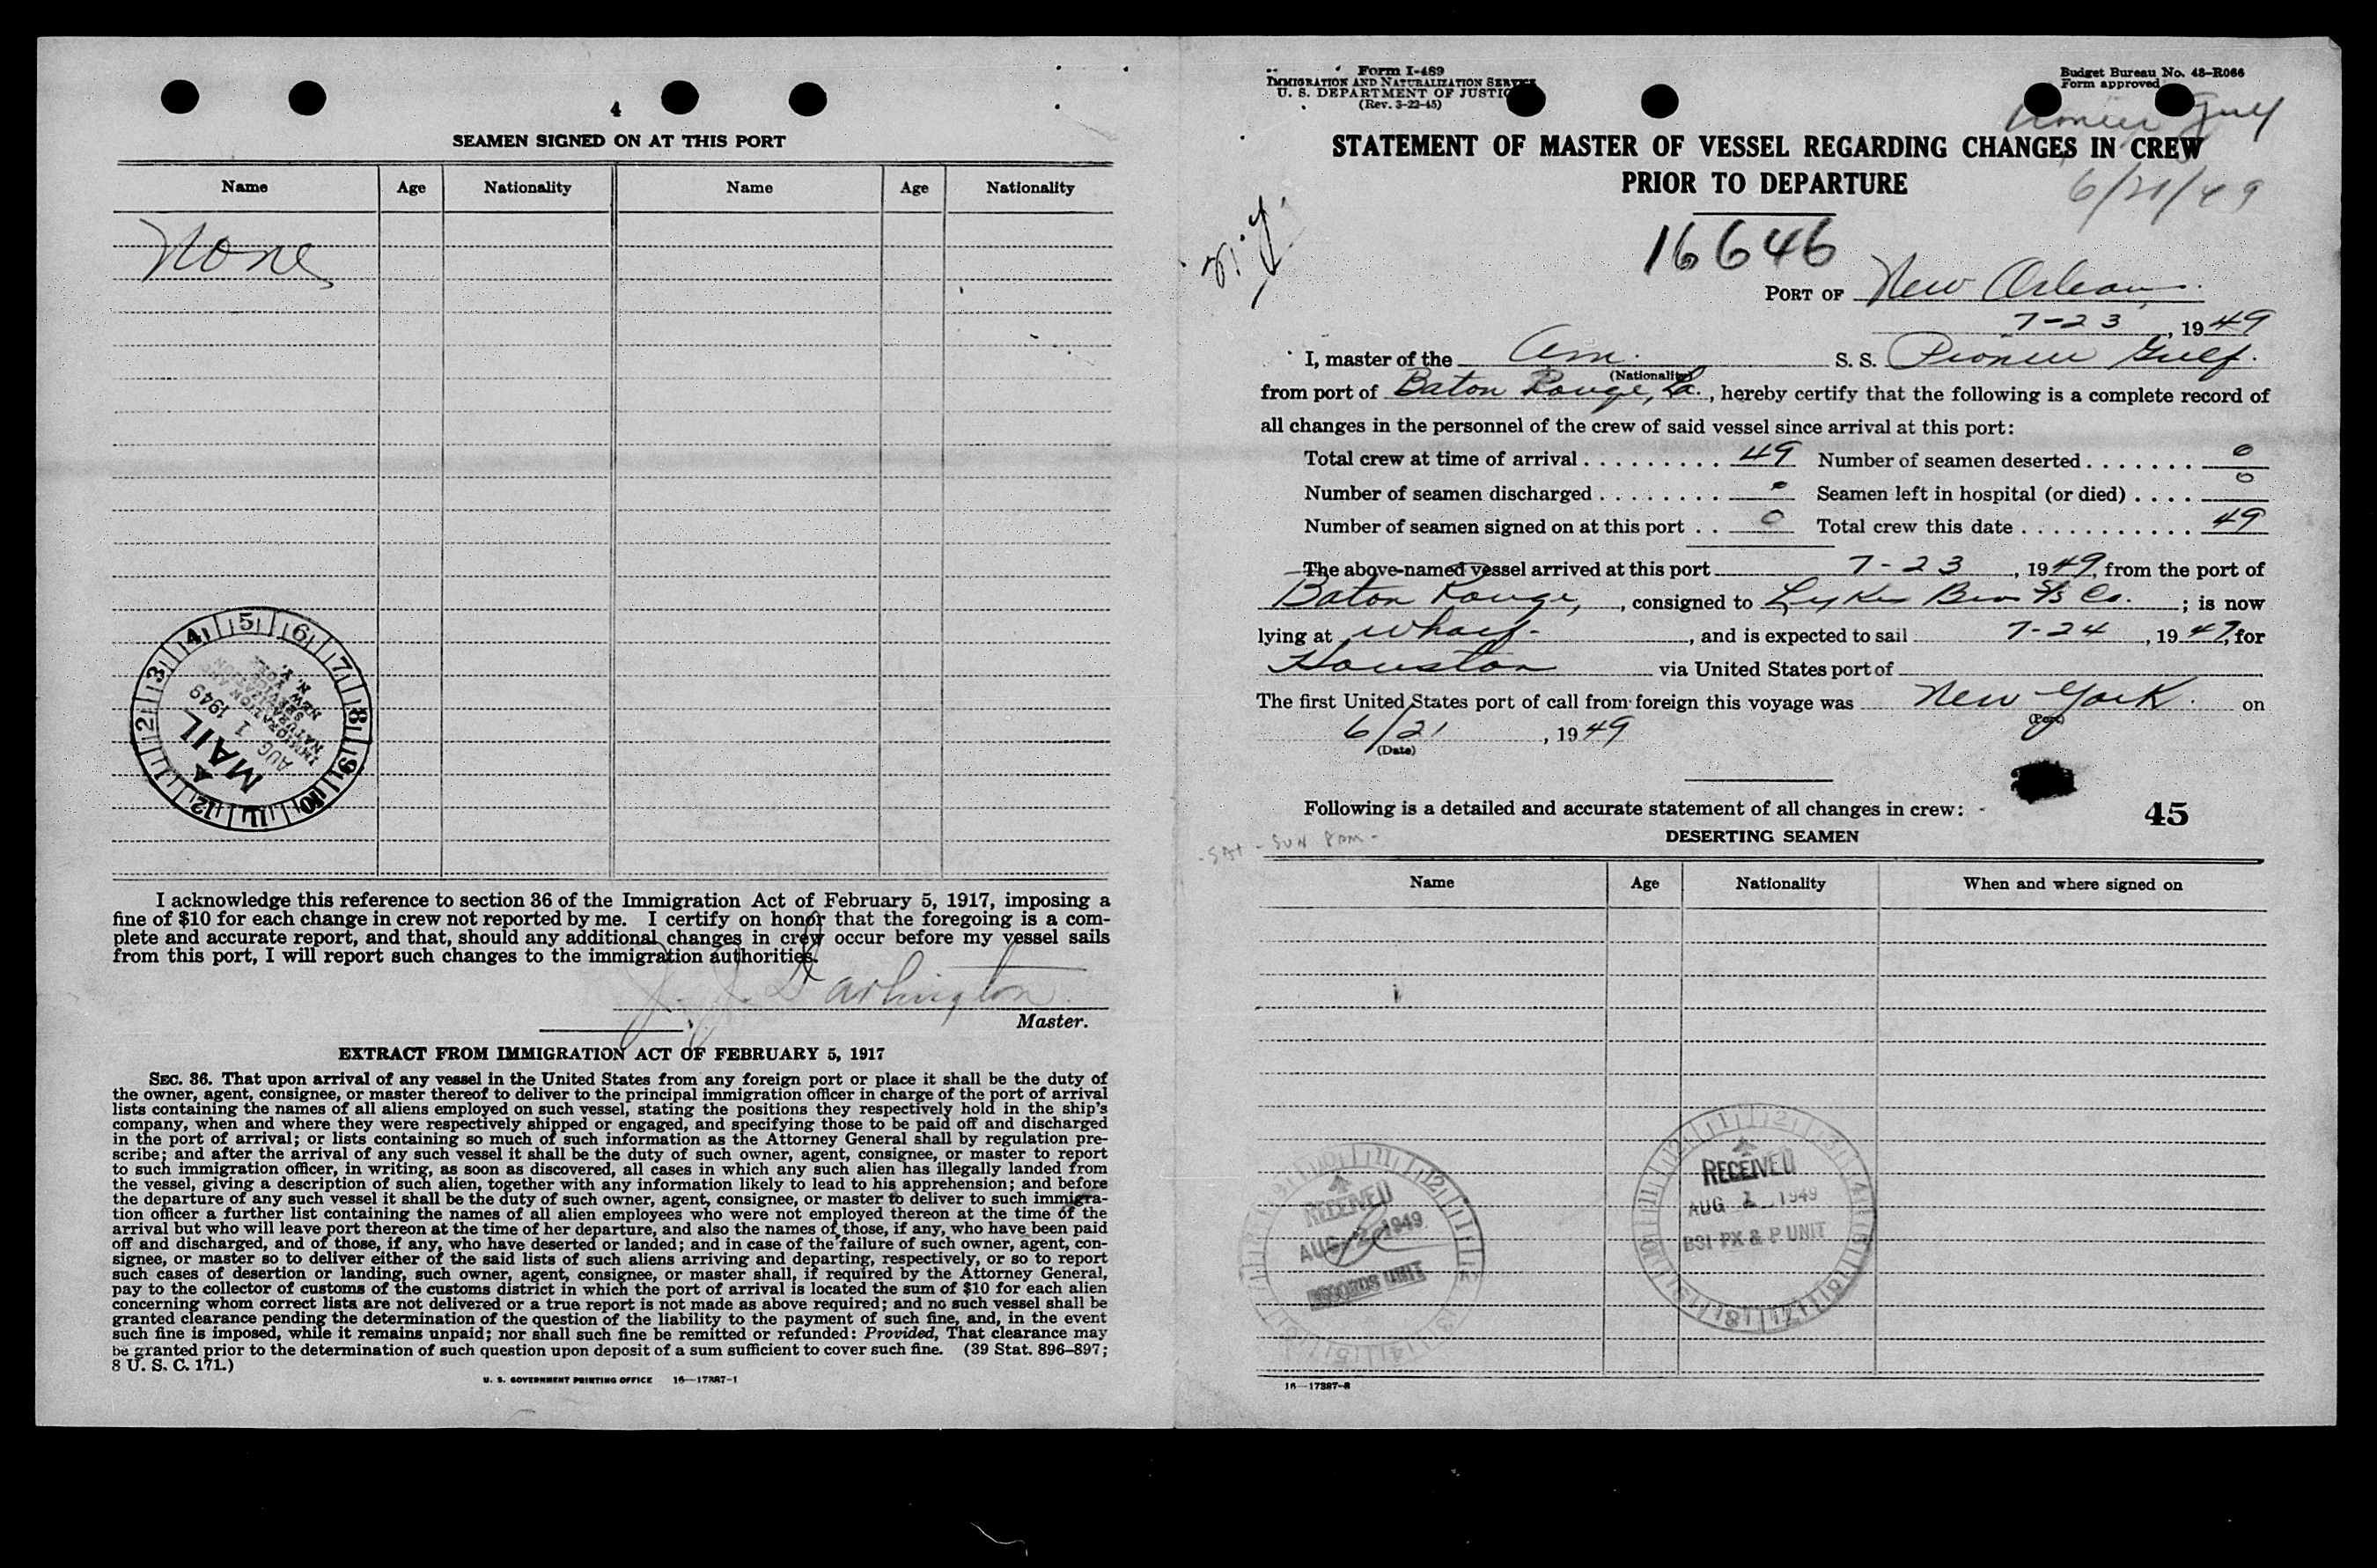 4
SEAMEN SIGNED ON AT THIS PORT
Name Age Nationality Name Age Nationality
None
5 6 7 8 9 10 11 12 1 2 3 4
IMMIGRATION AND
NATURALIZATION
SERVICE
NEW YORK
N. Y.
AUG 1 1949
MAIL
I acknowledge this reference to section 36 of the Immigration Act of February 5, 1917, imposing a
fine of $10 for each change in crew not reported by me. I certify on honor that the foregoing is a com-
plete and accurate report, and that, should any additional changes in crew occur before my vessel sails
from this port, I will report such changes to the immigration authorities.
J. J. Darlington
Master.
EXTRACT FROM IMMIGRATION ACT OF FEBRUARY 5, 1917
SEC. 36. That upon arrival of any vessel in the United States from any foreign port or place it shall be the duty of
the owner, agent, consignee, or master thereof to deliver to the principal immigration officer in charge of the port of arrival
lists containing the names of all aliens employed on such vessel, stating the positions they respectively hold in the ship's
company, when and where they were respectively shipped or engaged, and specifying those to be paid off and discharged
in the port of arrival; or lists containing so much of such information as the Attorney General shall by regulation pre-
scribe; and after the arrival of any such vessel it shall be the duty of such owner, agent, consignee, or master to report
to such immigration officer, in writing, as soon as discovered, all cases in which any such alien has illegally landed from
the vessel, giving a description of such alien, together with any information likely to lead to his apprehension; and before
the departure of any such vessel it shall be the duty of such owner, agent, consignee, or master to deliver to such immigra-
tion officer a further list containing the names of all alien employees who were not employed thereon at the time of the
arrival but who will leave port thereon at the time of her departure, and also the names of those, if any, who have been paid
off and discharged, and of those, if any, who have deserted or landed; and in case of the failure of such owner, agent, con-
signee, or master so to deliver either of the said lists of such aliens arriving and departing, respectively, or so to report
such cases of desertion or landing, such owner, agent, consignee, or master shall, if required by the Attorney General,
pay to the collector of customs of the customs district in which the port of arrival is located the sum of $10 for each alien
concerning whom correct lists are not delivered or a true report is not made as above required; and no such vessel shall be
granted clearance pending the determination of the question of the liability to the payment of such fine, and, in the event
such fine is imposed, while it remains unpaid; nor shall such fine be remitted or refunded: Provided, That clearance may
be granted prior to the determination of such question upon deposit of a sum sufficient to cover such fine. (39 Stat. 896–897;
8 U. S. C. 171.)
U. S. GOVERNMENT PRINTING OFFICE 16—17387-1
Form I-489
IMMIGRATION AND NATURALIZATION SERVICE
U. S. DEPARTMENT OF JUSTIC
(Rev. 3-22-45)
Budget Bureau No. 43–R066
Form approved
Pioneer Gulf
STATEMENT OF MASTER OF VESSEL REGARDING CHANGES IN CREW
PRIOR TO DEPARTURE
6/21/49
16646
PORT OF New Orleans
7-23, 1949
I, master of the Am. S. S. Pioneer Gulf.
(Nationality)
from port of Baton Rouge, La., hereby certify that the following is a complete record of
all changes in the personnel of the crew of said vessel since arrival at this port:
Total crew at time of arrival 49 Number of seamen deserted 0
Number of seamen discharged 0 Seamen left in hospital (or died) 0
Number of seamen signed on at this port 0 Total crew this date 49
The above-named vessel arrived at this port 7-23, 1949, from the port of
Baton Rouge, consigned to Lykes Bros S/S Co.; is now
lying at wharf-, and is expected to sail 7-24, 1949, for
Houston via United States port of
The first United States port of call from foreign this voyage was New York. on
(Port)
6/21, 1949
(Date)
Following is a detailed and accurate statement of all changes in crew:
45
- SAT - SUN 8 PM -
DESERTING SEAMEN
Name Age Nationality When and where signed on
RECEIVED
AUG 2 1949
RECORDS UNIT
RECEIVED
AUG 1949
BSI PX & P UNIT
16—17387-2